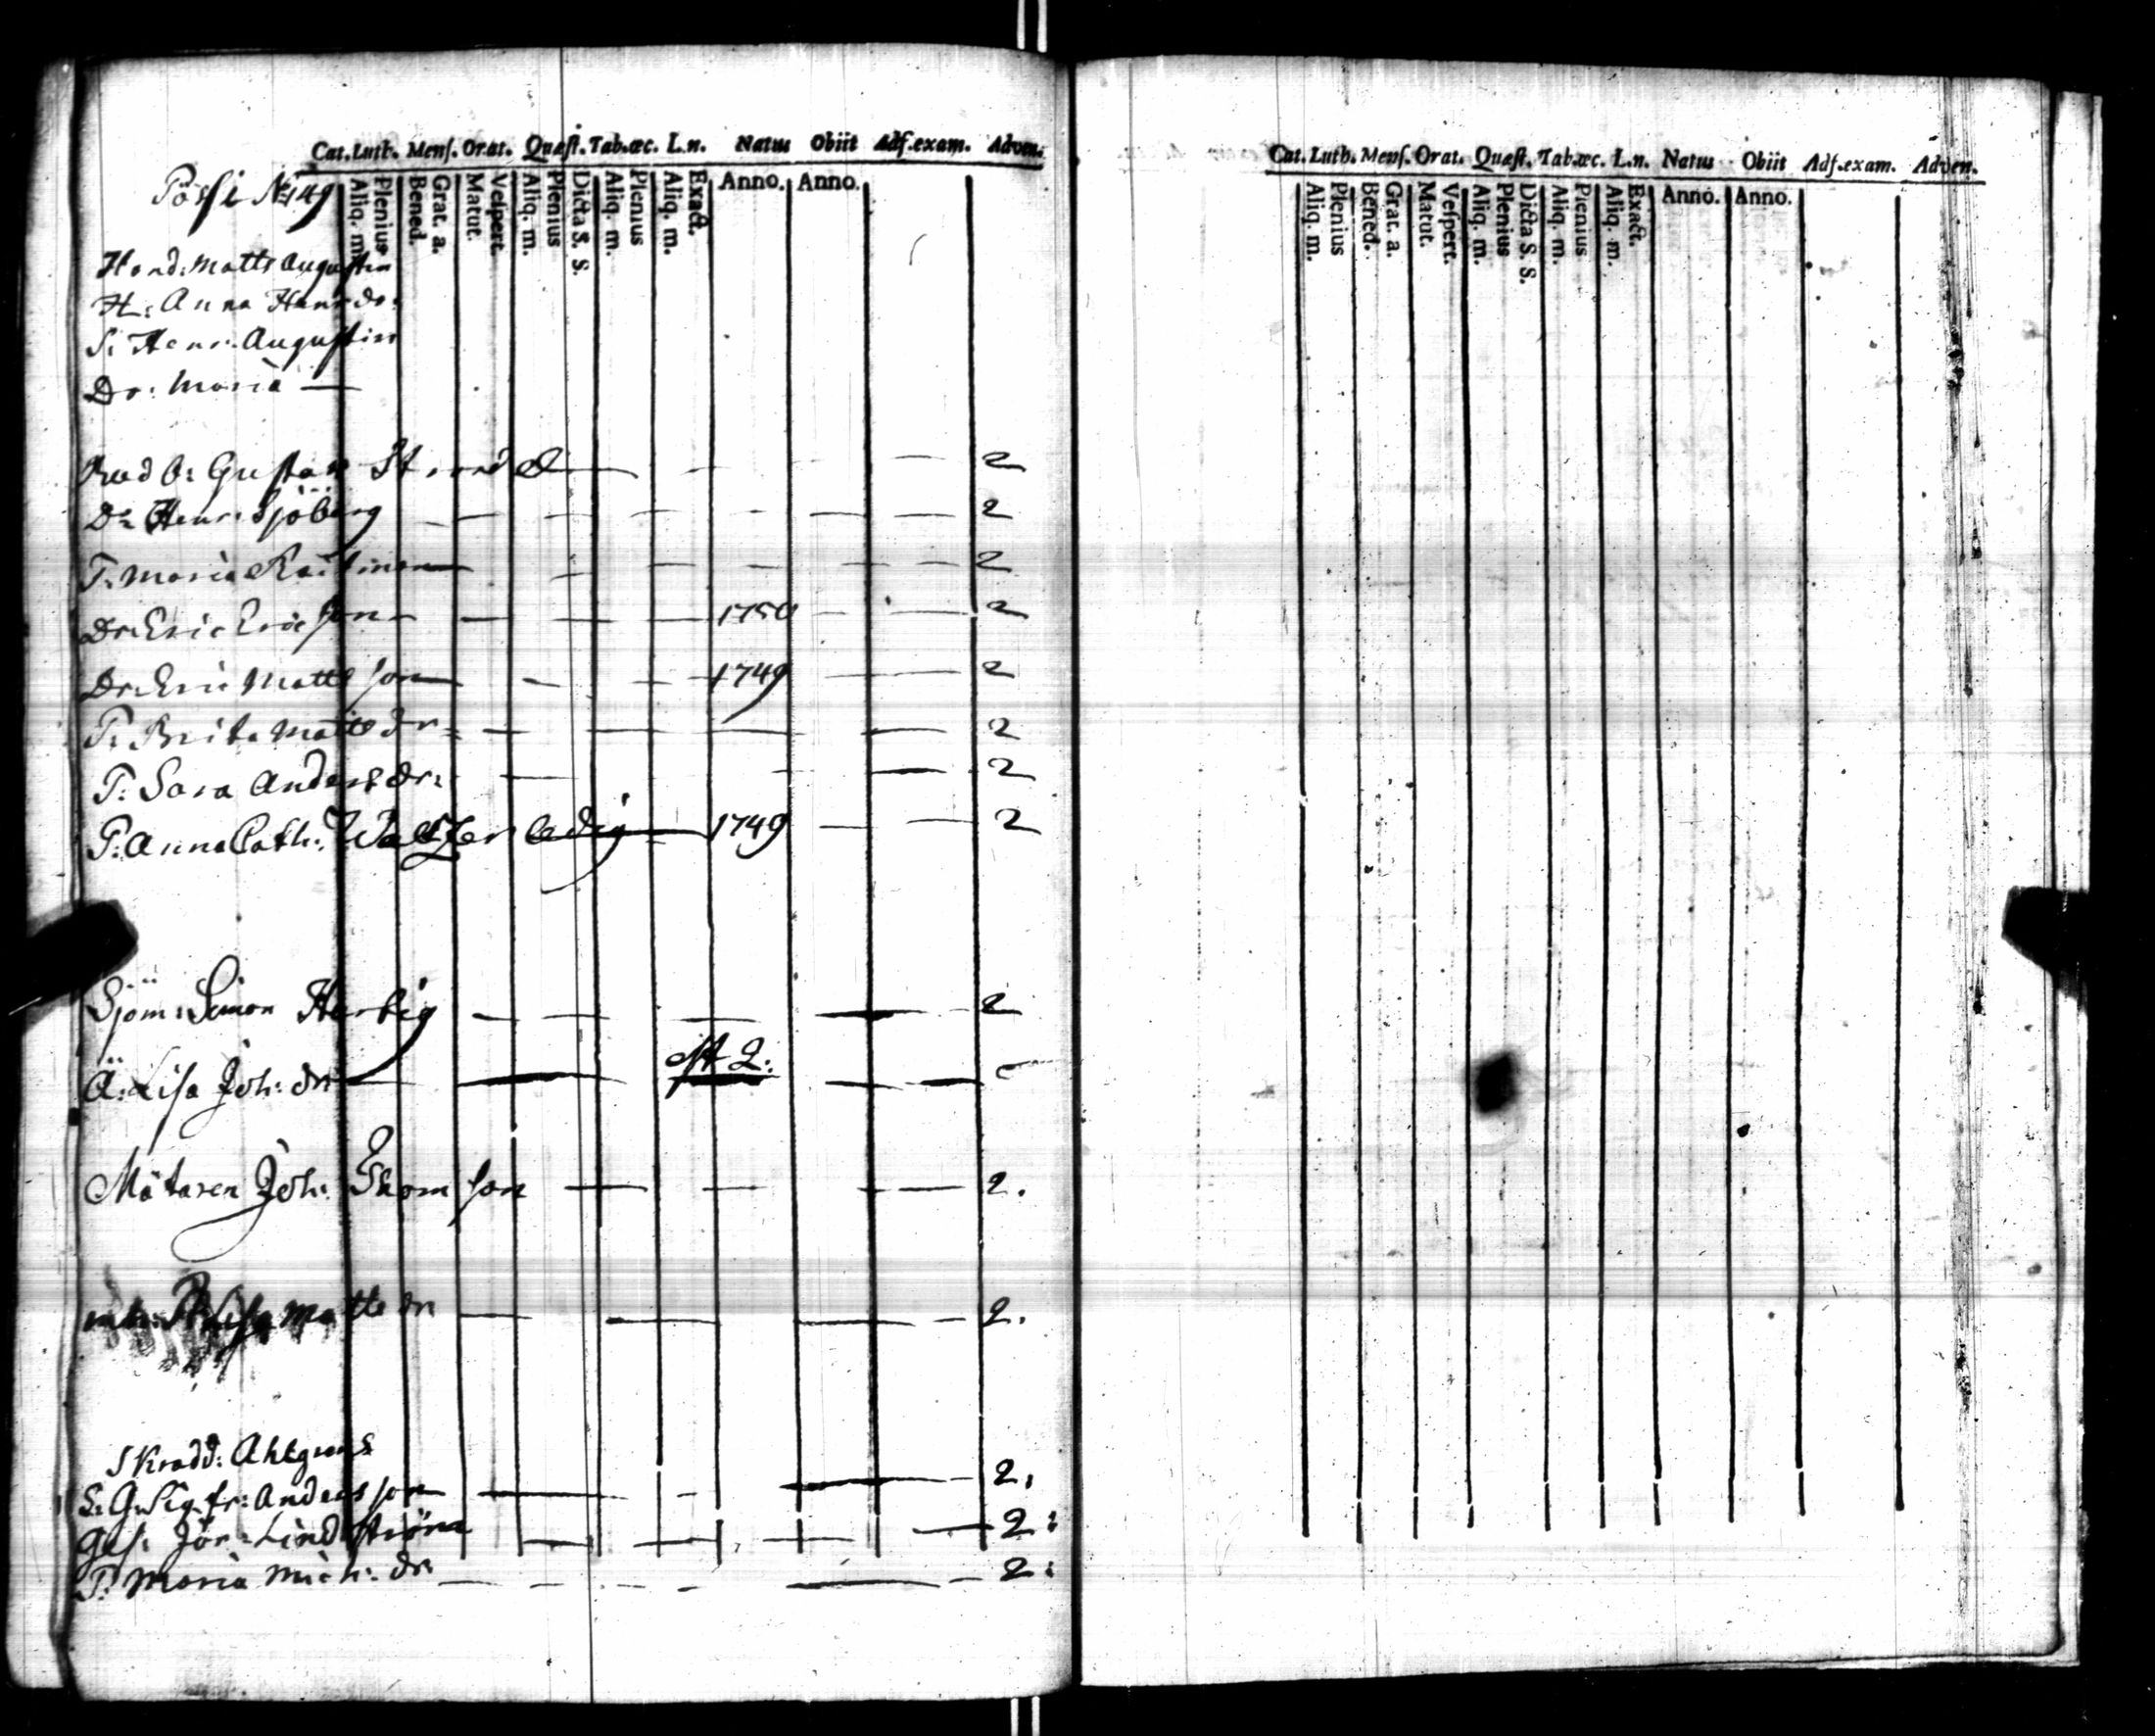 Cat. Luth. Mens. Orat. Quæst. Tab. œc. L. n. Natus Obiit Adf. exam. Adven.
Aliq. m. Plenius Bened. Grat. a. Matut. Vespert. Aliq. m. Plenius Dicta S. S. Aliq. m. Plenius Aliq. m. Exact. Anno. Anno.
Pössi No 149
Hand: Matts Augustin
H: Anna Hansdr:
S: Henr. Augustin
Dr: Maria —
Gustav 2
Dr Henr: Sjöberg 2
P. Maria 2
Dr: Eric Ericsson 1750 2
Dr: Eric Mattsson 1749 2
P. Brita Mattsdr 2
P: Sara Andersdr: 2
P: Anna Cath: ledig 1749 2
Sjöm: Simon Hertig 2
2:
Ä: Lisa Joh: dr:
Mätaren Joh: Thomson 2.
Lisa Matts dr 2.
Skradd: Ahlgrens
L: G: Sigfr: Andersson 2.
Ges: Jör: Lindström 2:
P: Maria Mich: dr 2:
Cat. Luth. Mens. Orat. Quæst. Tab. œc. L. n. Natus Obiit Adf. exam. Adven.
Aliq. m. Plenius Bened. Grat. a. Matut. Vespert. Aliq. m. Plenius Dicta S. S. Aliq. m. Plenius Aliq. m. Exact. Anno. Anno.